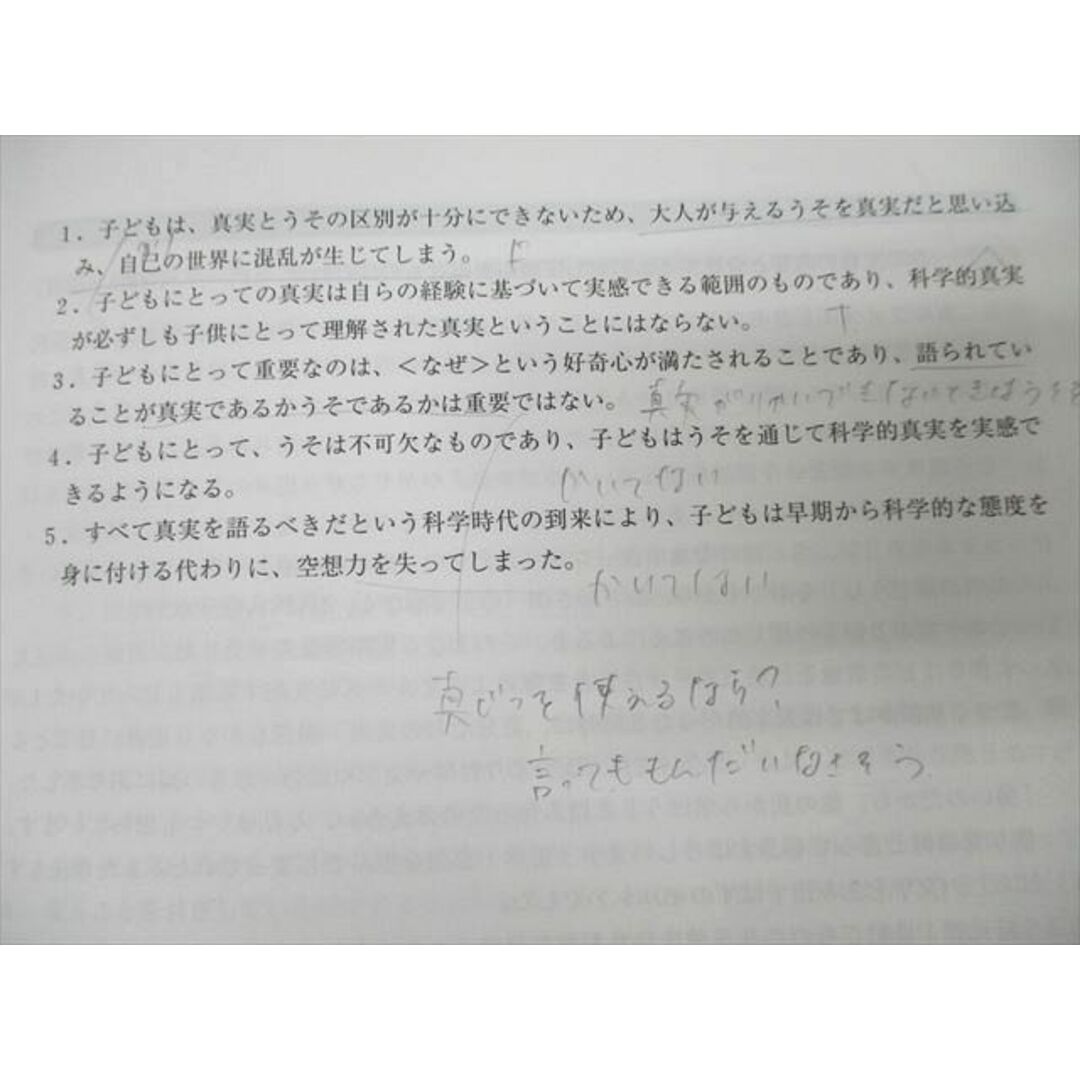 1. 子どもは、真実とうその区別が十分にできないため、大人が与えるうそを真実だと思い込
み、自己の世界に混乱が生じてしまう。
2. 子どもにとっての真実は自らの経験に基づいて実感できる範囲のものであり、科学的真実
が必ずしも子供にとって理解された真実ということにはならない。
3. 子どもにとって重要なのは、<なぜ>という好奇心が満たされることであり、語られてい
ることが真実であるかうそであるかは重要ではない。 真実がりかいできないときはうそを
4. 子どもにとって、うそは不可欠なものであり、子どもはうそを通じて科学的真実を実感で
きるようになる。 かいてない
5. すべて真実を語るべきだという科学時代の到来により、子どもは早期から科学的な態度を
身に付ける代わりに、空想力を失ってしまった。 かいてない
真じつを使えるなら?
言ってももんだいなさそう